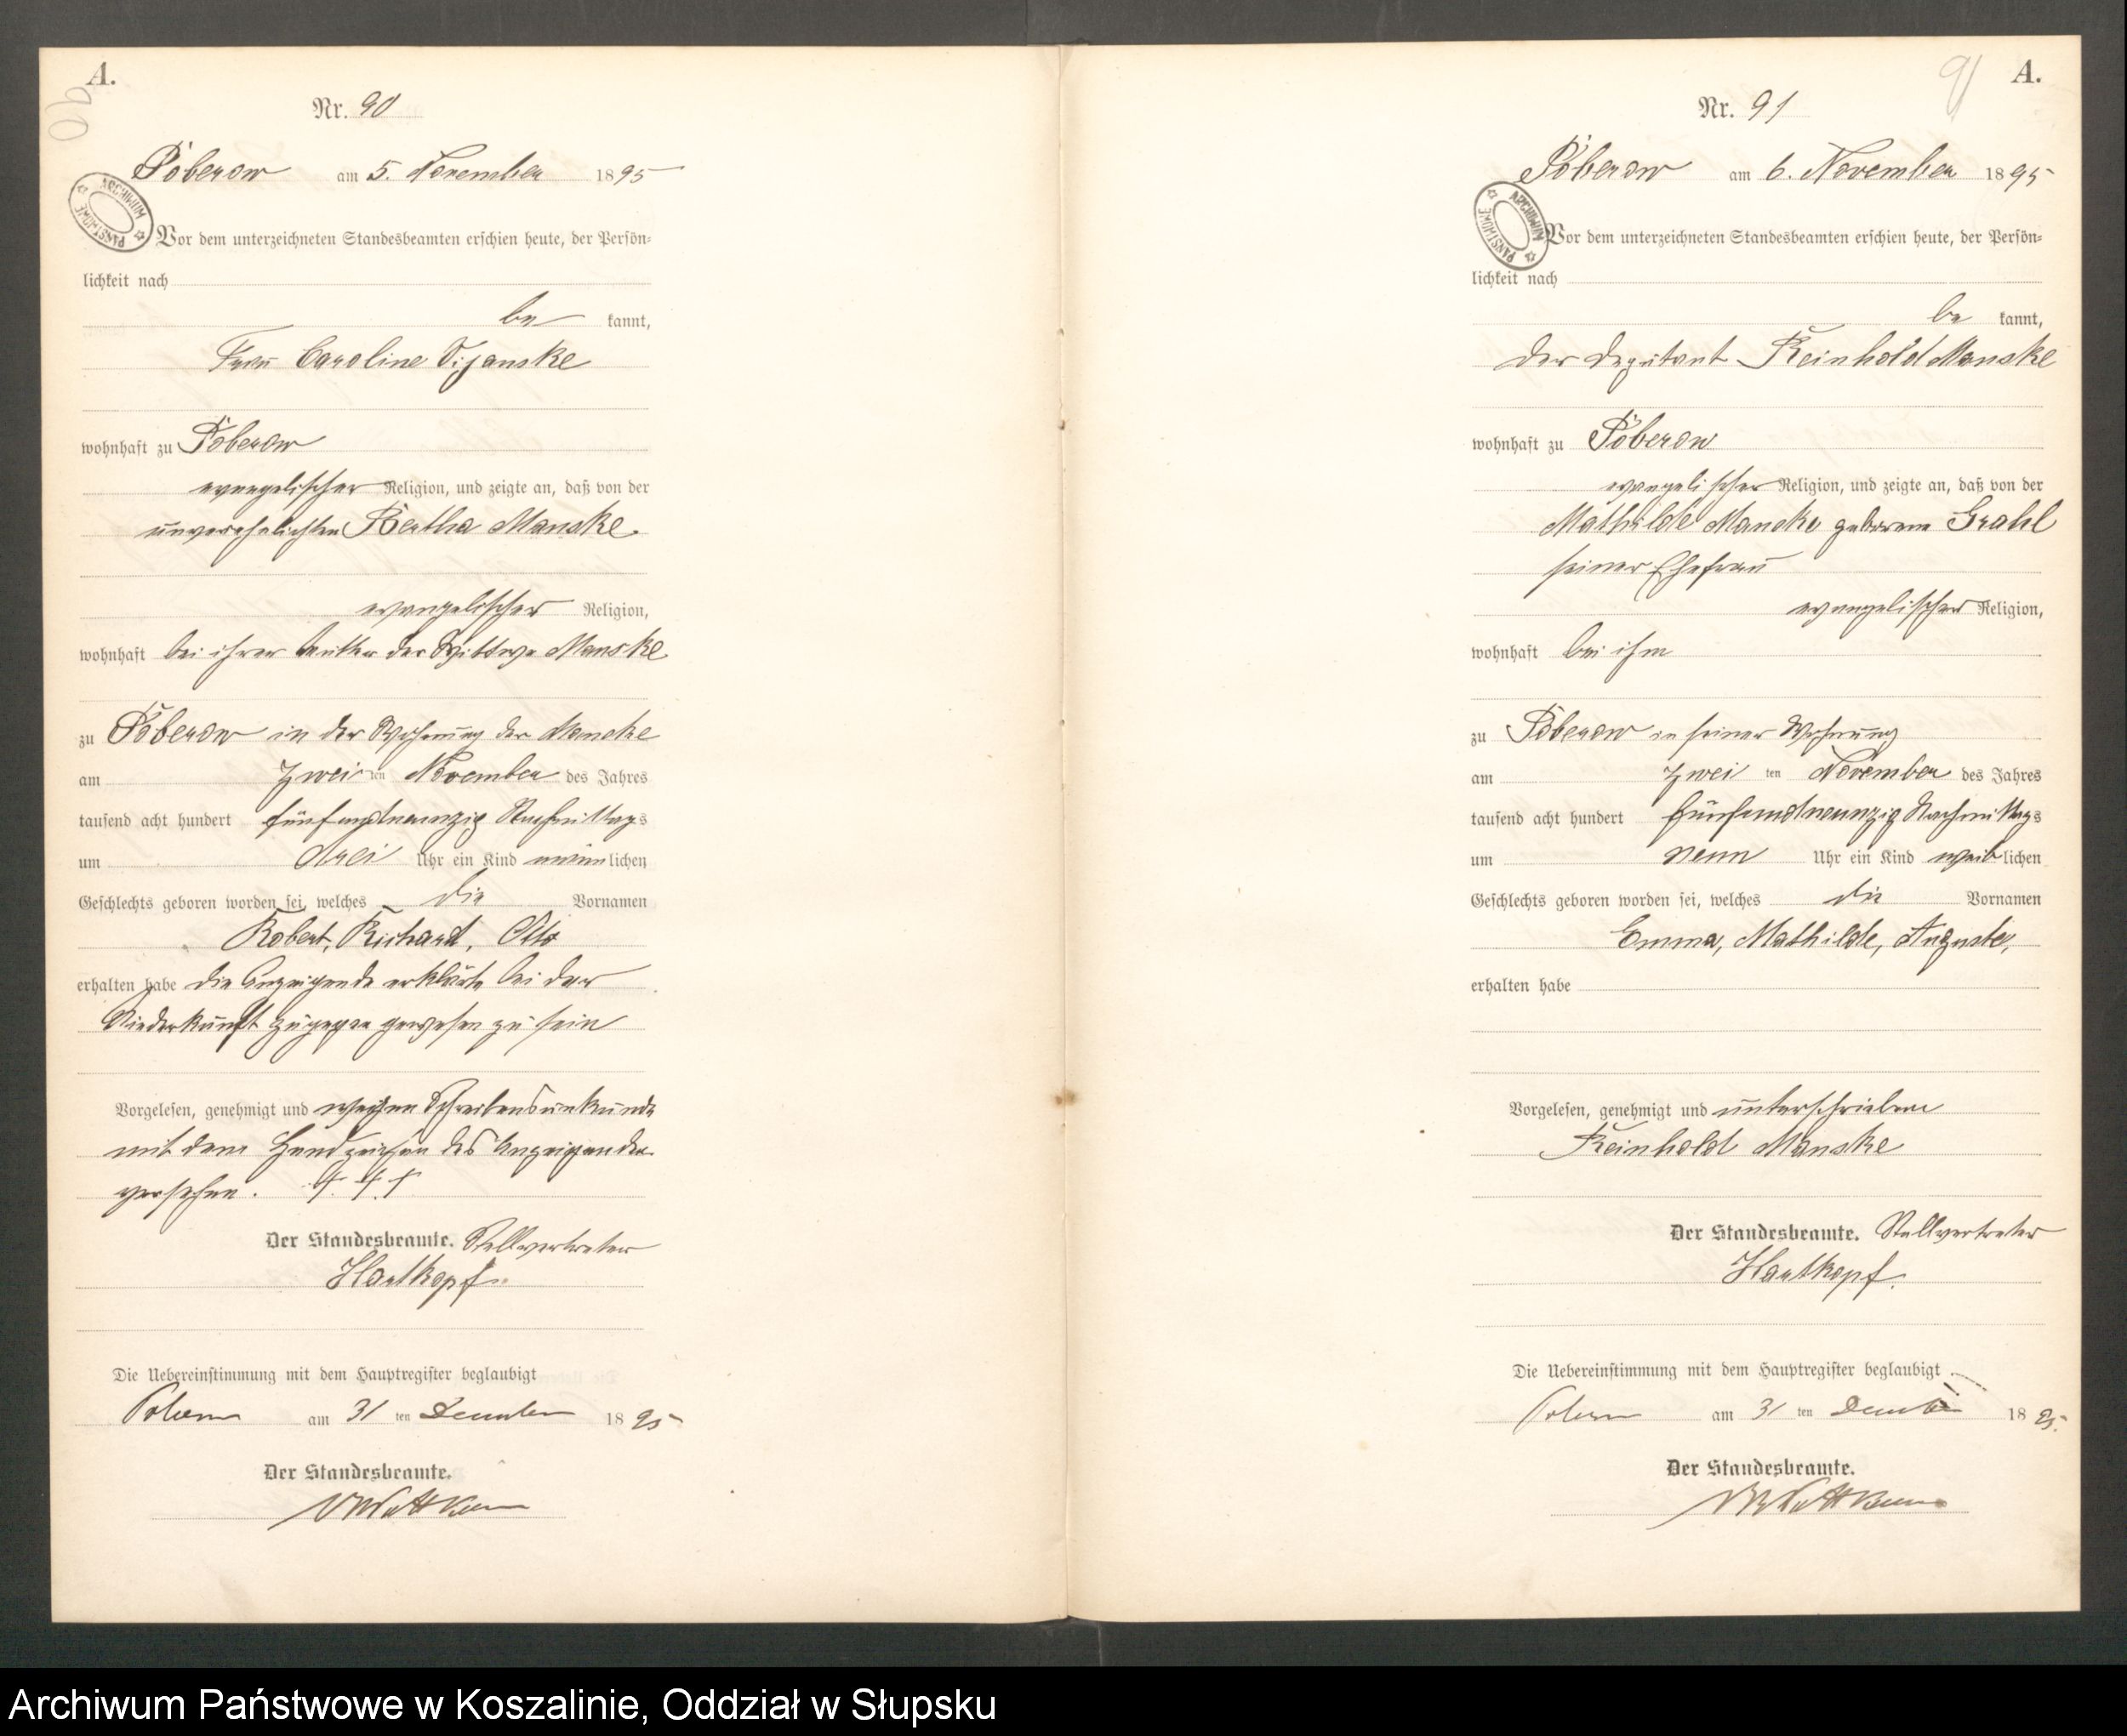 A.
90
Nr. 90
Poberow am 5. November 1895
ARCHIWUM PAŃSTWOWE
Vor dem unterzeichneten Standesbeamten erschien heute, der Persön-
lichkeit nach
be kannt,
Frau Caroline
wohnhaft zu Poberow
evangelischer Religion, und zeigte an, daß von der
unverehelichten Bertha Manske
evangelischer Religion,
wohnhaft bei ihrer Mutter der Wittwe Manske
zu Poberow in der Wohnung der Manske
am zwei ten November des Jahres
tausend acht hundert fünfundneunzig Nachmittags
um drei Uhr ein Kind männlichen
Geschlechts geboren worden sei, welches die Vornamen
Robert, Richard, Otto
erhalten habe die Anzeigende erklärte bei der
Niederkunft zugegen gewesen zu sein
Vorgelesen, genehmigt und wegen Schreibensunkunde
mit dem Handzeichen des Anzeigenden
versehen. † † †
Der Standesbeamte. Stellvertreter
Hartkopf
Die Uebereinstimmung mit dem Hauptregister beglaubigt
Poberow am 31 ten December 1895
Der Standesbeamte.
91 A.
Nr. 91
Poberow am 6. November 1895
ARCHIWUM PAŃSTWOWE
Vor dem unterzeichneten Standesbeamten erschien heute, der Persön-
lichkeit nach
be kannt,
der Deputant Reinhold Manske
wohnhaft zu Poberow
evangelischer Religion, und zeigte an, daß von der
Mathilde Manske geborene Grahl
seiner Ehefrau
evangelischer Religion,
wohnhaft bei ihm
zu Poberow in seiner Wohnung
am zwei ten November des Jahres
tausend acht hundert fünfundneunzig Nachmittags
um neun Uhr ein Kind weiblichen
Geschlechts geboren worden sei, welches die Vornamen
Emma, Mathilde, Auguste,
erhalten habe
Vorgelesen, genehmigt und unterschrieben
Reinhold Manske
Der Standesbeamte. Stellvertreter
Hartkopf.
Die Uebereinstimmung mit dem Hauptregister beglaubigt
Poberow am 31 ten December 1895.
Der Standesbeamte.
Archiwum Państwowe w Koszalinie, Oddział w Słupsku